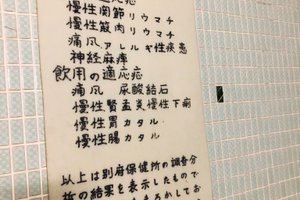 適応症
慢性関節リウマチ
慢性筋肉リウマチ
痛風 アレルギ性疾患
神経麻痺
飲用の適応症
痛風 尿酸結石
慢性腎盂炎慢性下痢
慢性胃カタル
慢性腸カタル
以上は別府保健所の調査分
析の結果を表示したもので